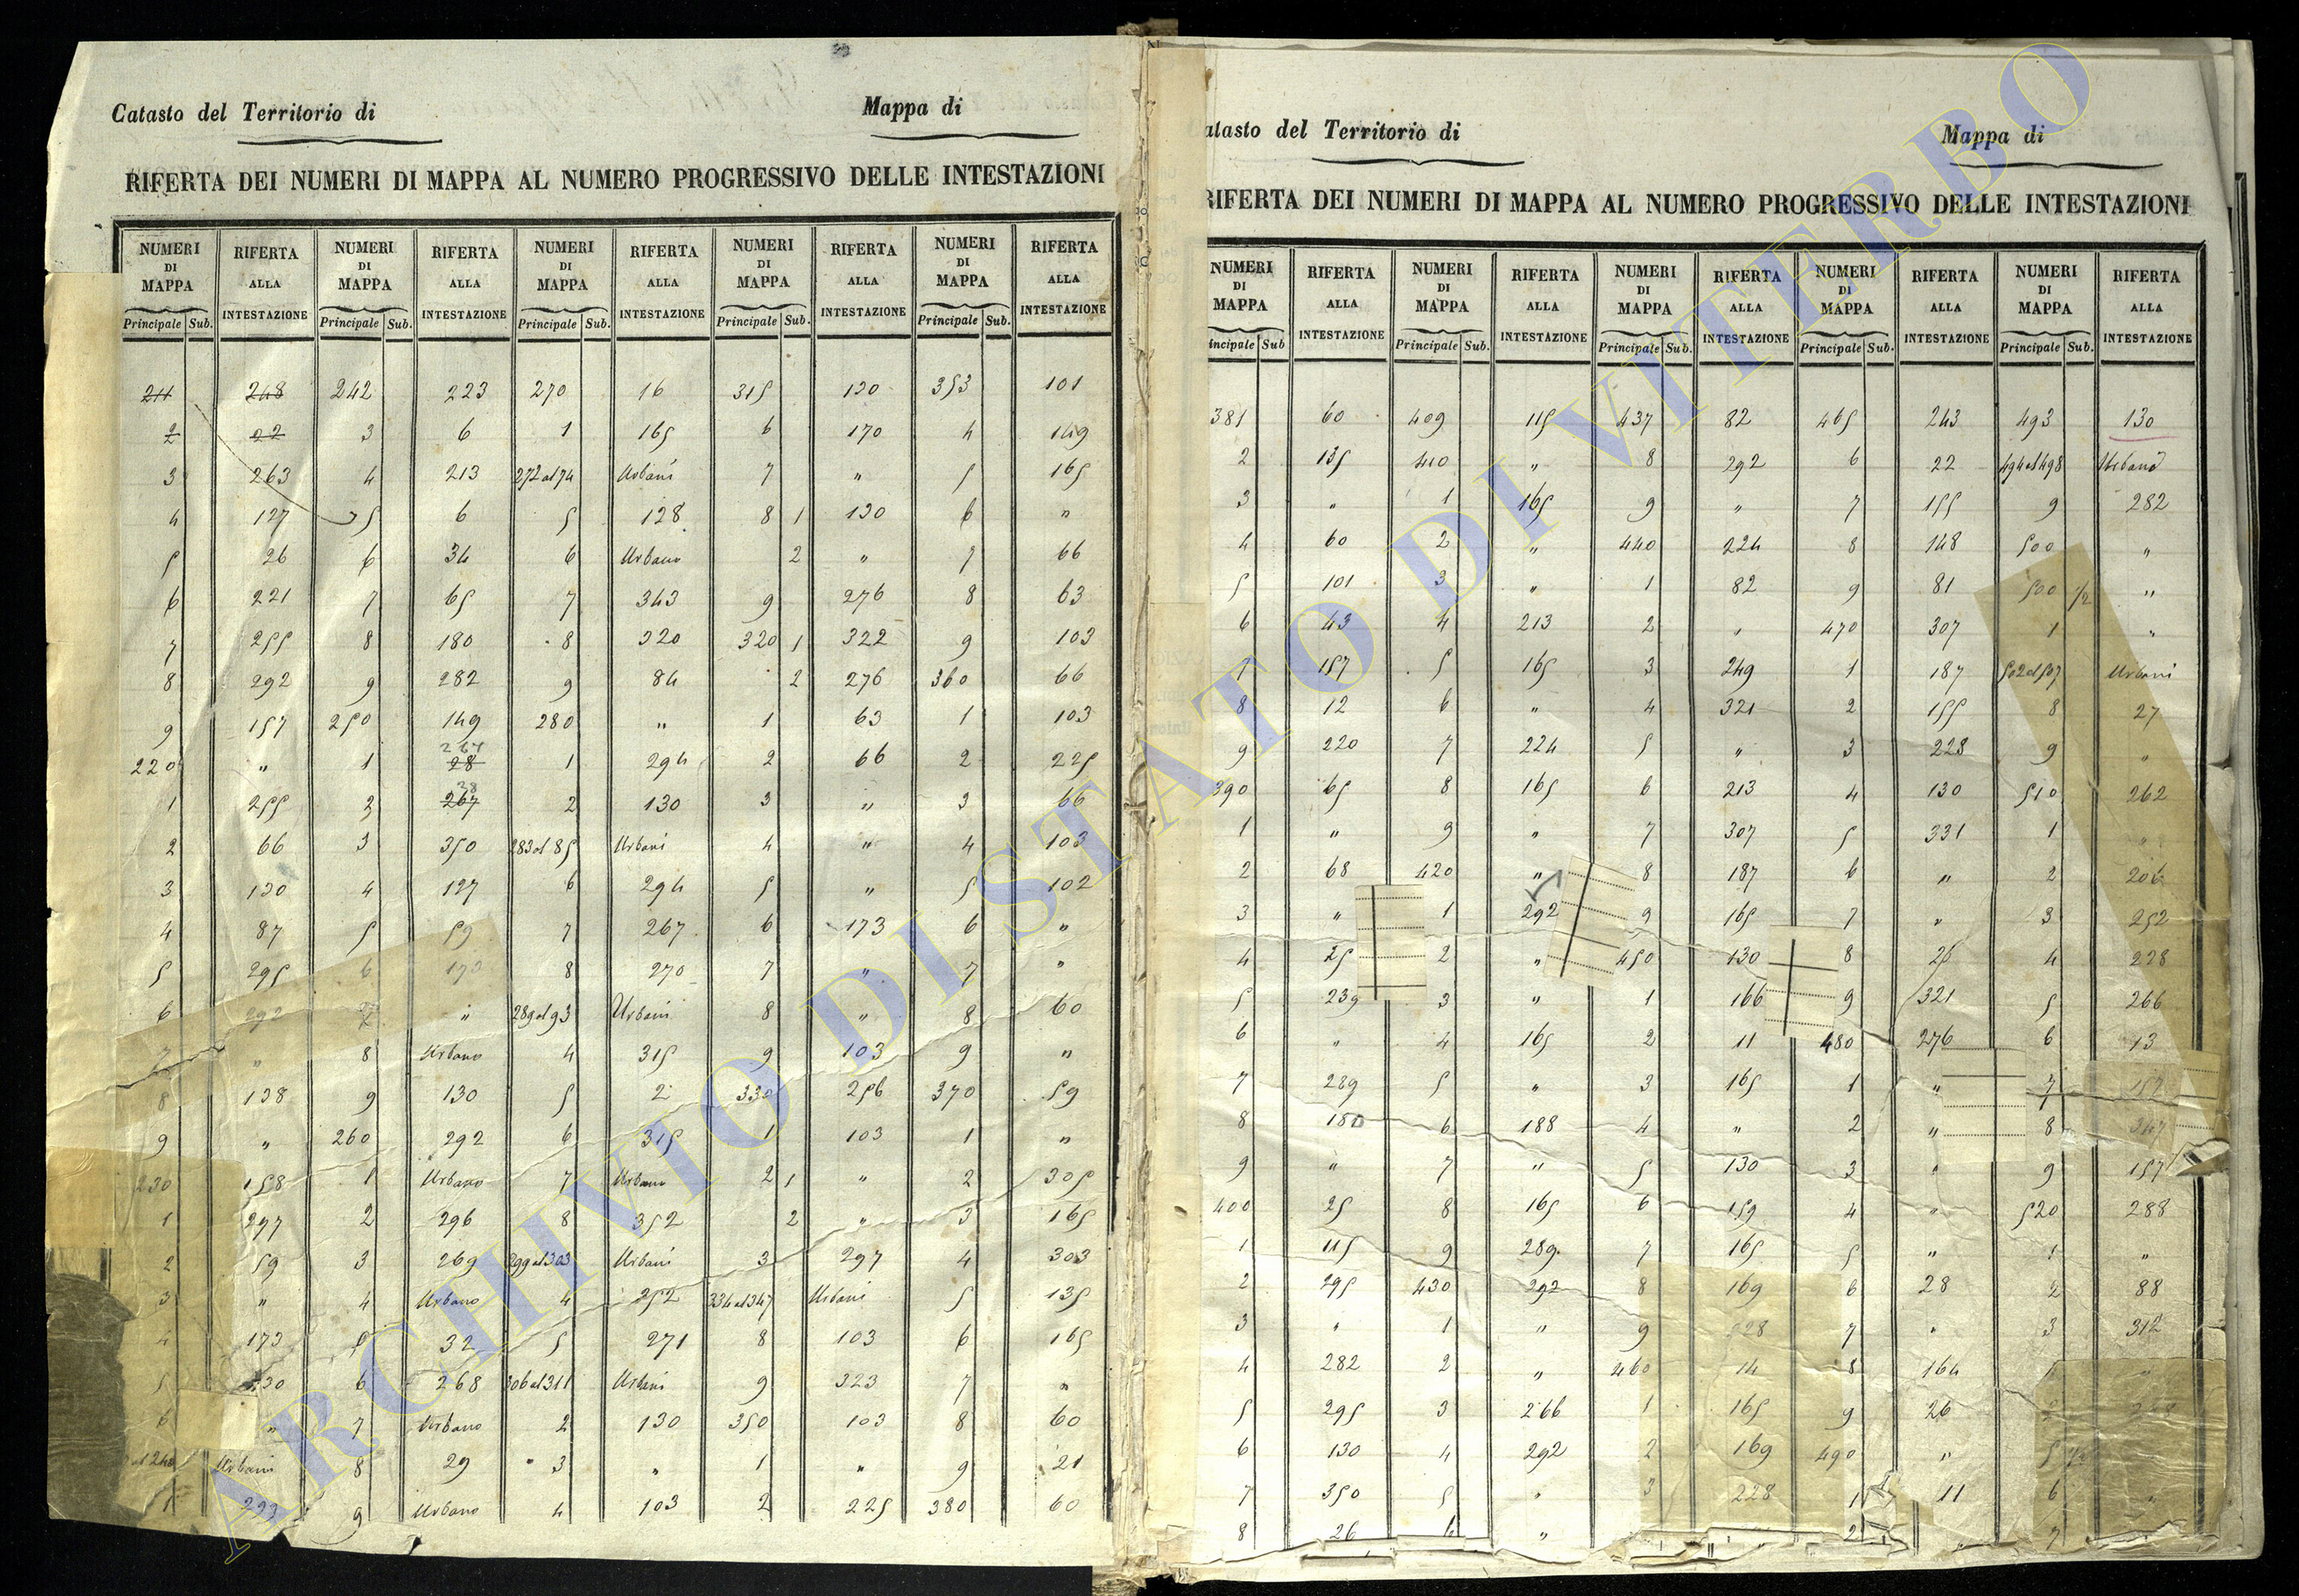 Catasto del Territorio di Mappa di
RIFERTA DEI NUMERI DI MAPPA AL NUMERO PROGRESSIVO DELLE INTESTAZIONI
NUMERI DI MAPPA RIFERTA ALLA INTESTAZIONE NUMERI DI MAPPA RIFERTA ALLA INTESTAZIONE NUMERI DI MAPPA RIFERTA ALLA INTESTAZIONE NUMERI DI MAPPA RIFERTA ALLA INTESTAZIONE NUMERI DI MAPPA RIFERTA ALLA INTESTAZIONE
Principale Sub. Principale Sub. Principale Sub. Principale Sub. Principale Sub.
211 248 242 223 270 16 315 130 353 101
2 22 3 6 1 165 6 170 4 149
3 263 4 213 272 al 74 Urbani 7 " 5 165
4 127 5 6 5 128 8 1 130 6 "
5 26 6 34 6 Urbano 2 " 7 66
6 221 7 65 7 343 9 276 8 63
7 255 8 180 8 320 320 1 322 9 103
8 292 9 282 9 84 2 276 360 66
9 157 250 149 280 " 1 63 1 103
220 " 1 267 28 1 294 2 66 2 225
1 255 2 28 267 2 130 3 " 3 66
2 66 3 350 283 al 85 Urbani 4 " 4 103
3 130 4 127 6 294 5 " 5 102
4 87 5 59 7 267 6 173 6 "
5 295 6 173 8 270 7 " 7 "
6 292 7 " 289 al 93 Urbani 8 " 8 60
7 " 8 Urbano 4 315 9 103 9 "
8 138 9 130 5 2 330 256 370 59
9 " 260 292 6 315 1 103 1 "
230 158 1 Urbano 7 Urbano 2 1 " 2 305
1 297 2 296 8 352 2 " 3 165
2 59 3 269 299 al 303 Urbani 3 297 4 303
3 " 4 Urbano 4 252 334 al 347 Urbani 5 135
4 173 5 32 5 271 8 103 6 165
5 130 6 268 306 al 311 Urbani 9 323 7 "
6 " 7 Urbano 2 130 350 103 8 60
al 240 Urbani 8 29 3 " 1 " 9 21
1 223 9 Urbano 4 103 2 225 380 60
atasto del Territorio di Mappa di
RIFERTA DEI NUMERI DI MAPPA AL NUMERO PROGRESSIVO DELLE INTESTAZIONI
NUMERI DI MAPPA RIFERTA ALLA INTESTAZIONE NUMERI DI MAPPA RIFERTA ALLA INTESTAZIONE NUMERI DI MAPPA RIFERTA ALLA INTESTAZIONE NUMERI DI MAPPA RIFERTA ALLA INTESTAZIONE NUMERI DI MAPPA RIFERTA ALLA INTESTAZIONE
incipale Sub Principale Sub. Principale Sub. Principale Sub. Principale Sub.
381 60 409 115 437 82 465 243 493 130
2 135 410 " 8 292 6 22 494 al 498 Urbani
3 " 1 165 9 " 7 155 9 282
4 60 2 " 440 224 8 148 500 "
5 101 3 " 1 82 9 81 500 1/2 "
6 43 4 213 2 " 470 307 1 "
7 157 5 165 3 249 1 187 502 al 507 Urbani
8 12 6 " 4 321 2 155 8 27
9 220 7 224 5 " 3 228 9 "
390 65 8 165 6 213 4 130 510 262
1 " 9 " 7 307 5 331 1 "
2 68 420 " 8 187 6 " 2 206
3 " 1 292 9 165 7 " 3 252
4 25 2 " 450 130 8 25 4 228
5 239 3 " 1 166 9 321 5 266
6 " 4 165 2 11 480 276 6 13
7 289 5 " 3 165 1 " 7 157
8 180 6 188 4 " 2 " 8 247
9 " 7 " 5 130 3 " 9 157
400 25 8 165 6 159 4 " 520 288
1 115 9 289 7 165 5 " 1 "
2 295 430 292 8 169 6 28 2 88
3 " 1 " 9 228 7 " 3 312
4 282 2 " 460 14 8 164
5 295 3 266 1 165 9 26
6 130 4 292 2 169 490 " 5
7 350 5 " 3 228 1 11 6 "
8 26 6 " 2 7
ARCHIVIO DI STATO DI VITERBO